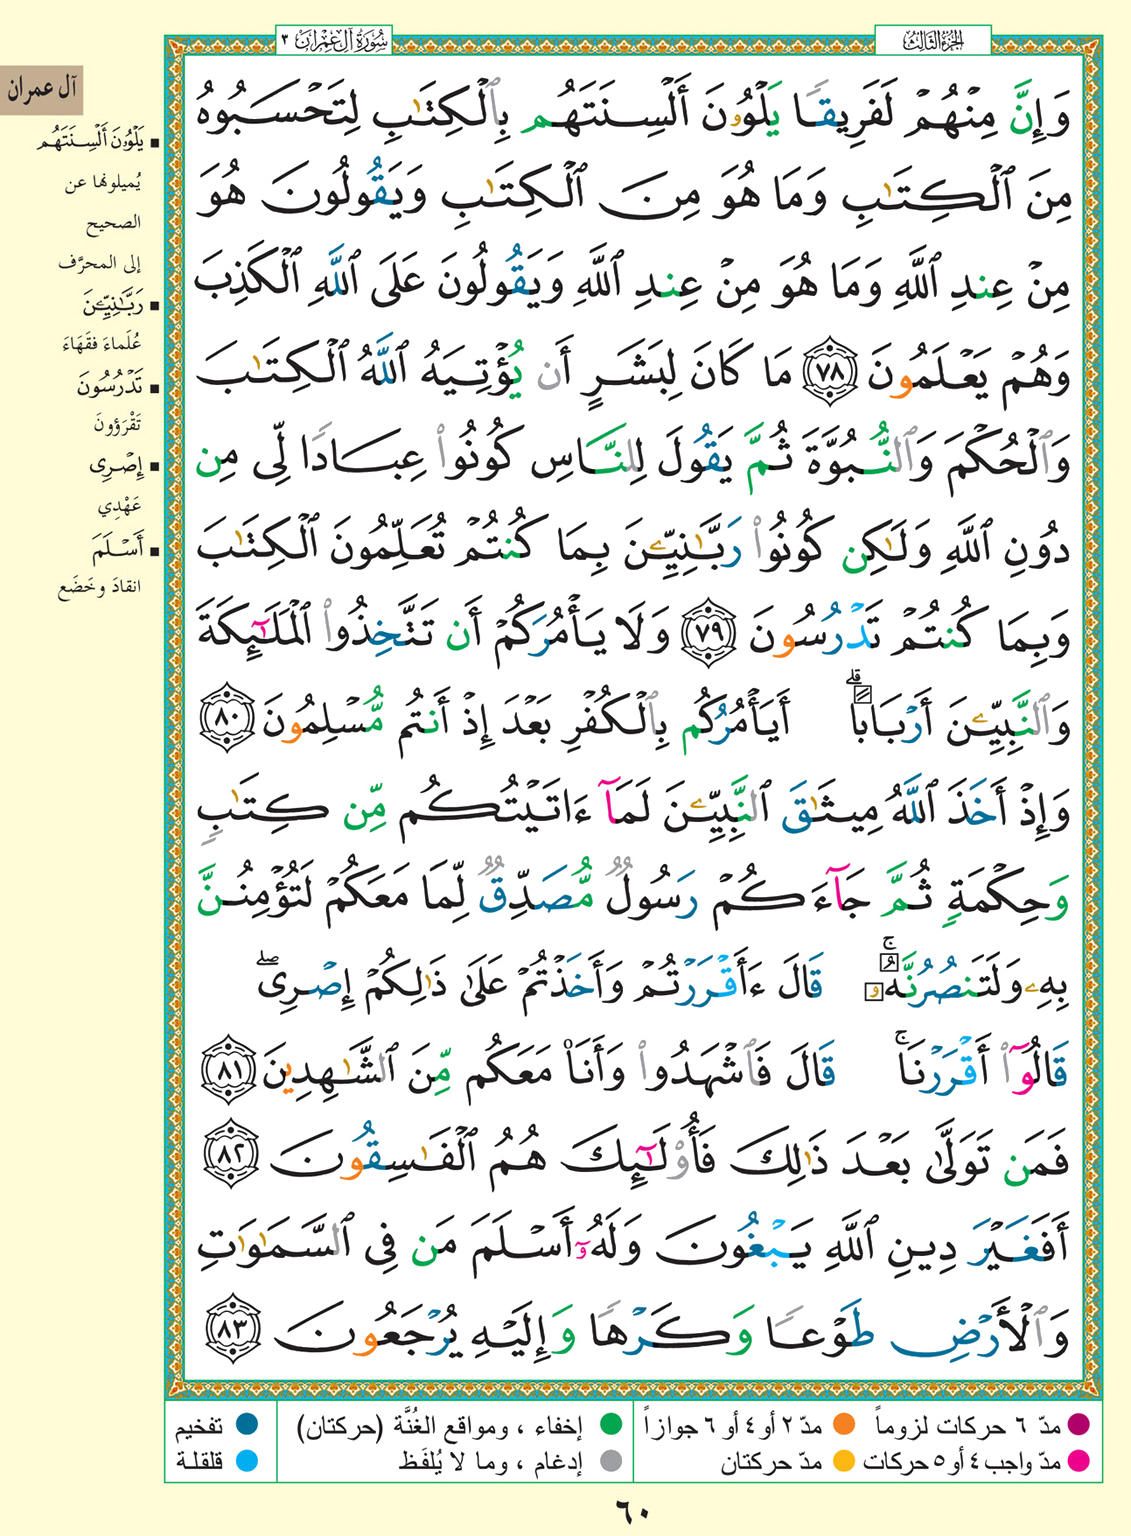 سُورَةُ آلِ عِمْرَان ٣
الجزء الثالث
وَإِنَّ مِنْهُمْ لَفَرِيقًا يَلْوُۥنَ أَلْسِنَتَهُم بِٱلْكِتَٰبِ لِتَحْسَبُوهُ
مِنَ ٱلْكِتَٰبِ وَمَا هُوَ مِنَ ٱلْكِتَٰبِ وَيَقُولُونَ هُوَ
مِنْ عِندِ ٱللَّهِ وَمَا هُوَ مِنْ عِندِ ٱللَّهِ وَيَقُولُونَ عَلَى ٱللَّهِ ٱلْكَذِبَ
وَهُمْ يَعْلَمُونَ ٧٨ مَا كَانَ لِبَشَرٍ أَن يُؤْتِيَهُ ٱللَّهُ ٱلْكِتَٰبَ
وَٱلْحُكْمَ وَٱلنُّبُوَّةَ ثُمَّ يَقُولَ لِلنَّاسِ كُونُوا۟ عِبَادًا لِّى مِن
دُونِ ٱللَّهِ وَلَٰكِن كُونُوا۟ رَبَّٰنِيِّۦنَ بِمَا كُنتُمْ تُعَلِّمُونَ ٱلْكِتَٰبَ
وَبِمَا كُنتُمْ تَدْرُسُونَ ٧٩ وَلَا يَأْمُرَكُمْ أَن تَتَّخِذُوا۟ ٱلْمَلَٰٓئِكَةَ
وَٱلنَّبِيِّۦنَ أَرْبَابًا ۗ أَيَأْمُرُكُم بِٱلْكُفْرِ بَعْدَ إِذْ أَنتُم مُّسْلِمُونَ ٨٠
وَإِذْ أَخَذَ ٱللَّهُ مِيثَٰقَ ٱلنَّبِيِّۦنَ لَمَآ ءَاتَيْتُكُم مِّن كِتَٰبٍ
وَحِكْمَةٍ ثُمَّ جَآءَكُمْ رَسُولٌ مُّصَدِّقٌ لِّمَا مَعَكُمْ لَتُؤْمِنُنَّ
بِهِۦ وَلَتَنصُرُنَّهُۥ ۚ قَالَ ءَأَقْرَرْتُمْ وَأَخَذْتُمْ عَلَىٰ ذَٰلِكُمْ إِصْرِى ۖ
قَالُوٓا۟ أَقْرَرْنَا ۚ قَالَ فَٱشْهَدُوا۟ وَأَنَا۠ مَعَكُم مِّنَ ٱلشَّٰهِدِينَ ٨١
فَمَن تَوَلَّىٰ بَعْدَ ذَٰلِكَ فَأُو۟لَٰٓئِكَ هُمُ ٱلْفَٰسِقُونَ ٨٢
أَفَغَيْرَ دِينِ ٱللَّهِ يَبْغُونَ وَلَهُۥٓ أَسْلَمَ مَن فِى ٱلسَّمَٰوَٰتِ
وَٱلْأَرْضِ طَوْعًا وَكَرْهًا وَإِلَيْهِ يُرْجَعُونَ ٨٣
آل عمران
يَلْوُۥنَ أَلْسِنَتَهُم
يُميلونها عن
الصحيح
إلى المحرَّف
رَبَّٰنِيِّۦنَ
عُلَماءَ فقَهَاءَ
تَدْرُسُونَ
تَقْرَؤونَ
إِصْرِى
عَهْدِي
أَسْلَمَ
انقادَ وخَضَع
مدّ ٦ حركات لزوماً
مدّ ٢ أو ٤ أو ٦ جوازاً
إخفاء ، ومواقع الغُنَّة (حركتان)
تفخيم
مدّ واجب ٤ أو ٥ حركات
مدّ حركتان
إدغام ، وما لا يُلفَظ
قلقلة
٦٠